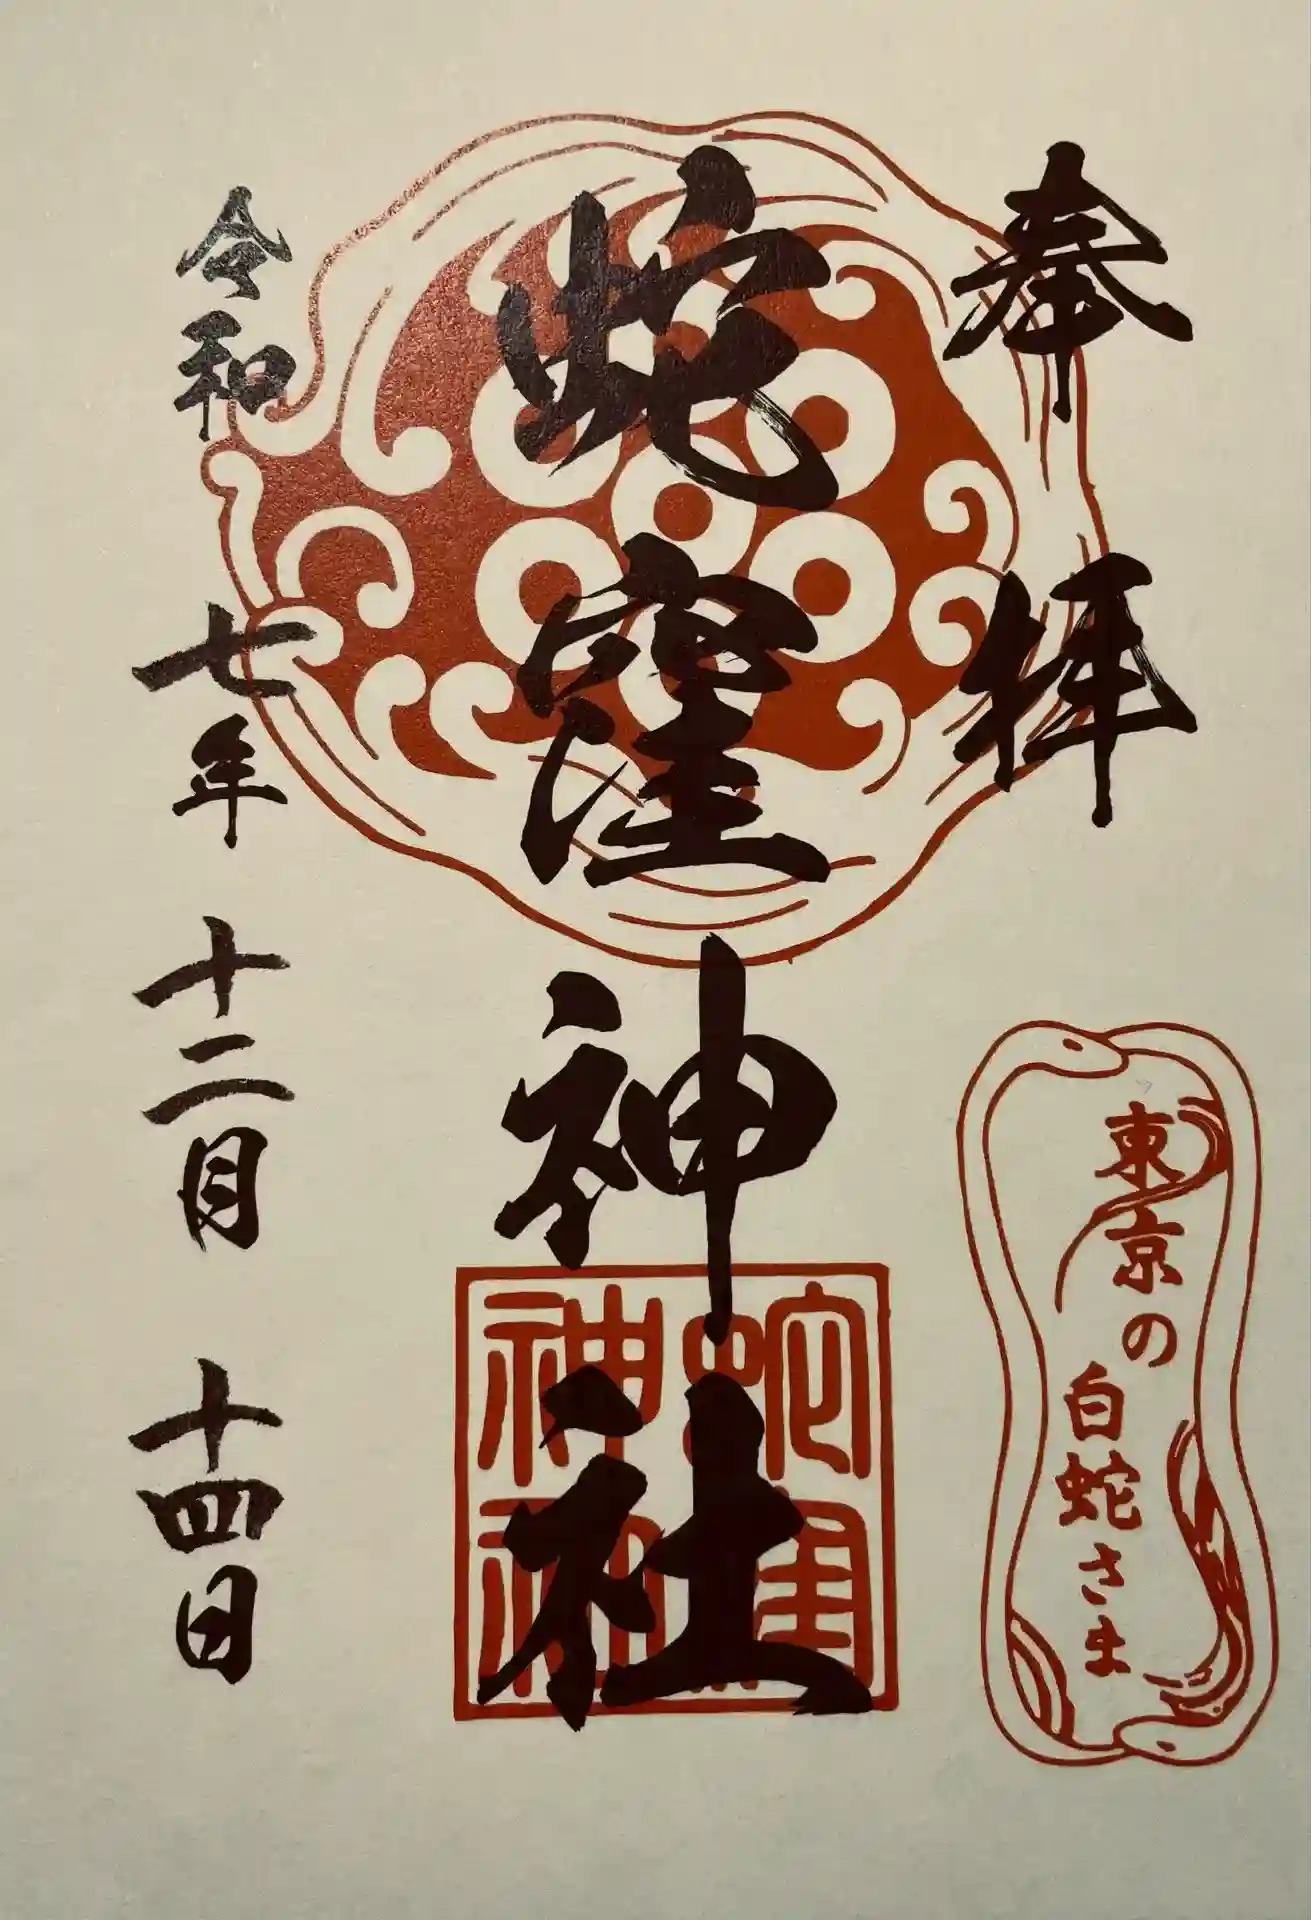 奉拝
東京の
白蛇さま
蛇窪神社
蛇窪
神社
令和七年十二月十四日